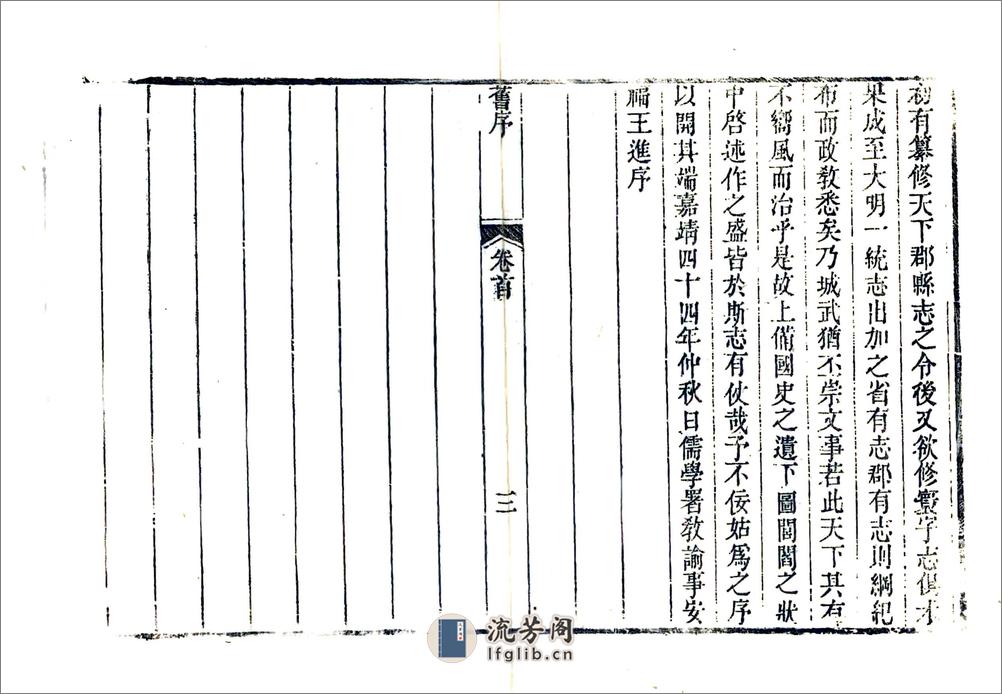 初有纂修天下郡縣志之令後又欲修寰宇志俱未
果成至大明一統志出加之省有志郡有志則綱紀
布而政教悉矣乃城武猶不崇文事若此天下其有
不嚮風而治乎是故上備國史之遺下圖閭閻之狀
中啓述作之盛皆於斯志有仗哉予不佞姑爲之序
以開其端嘉靖四十四年仲秋日儒學署教諭事安
福王進序
舊序
卷首
三
流芳阁
lfglib.cn